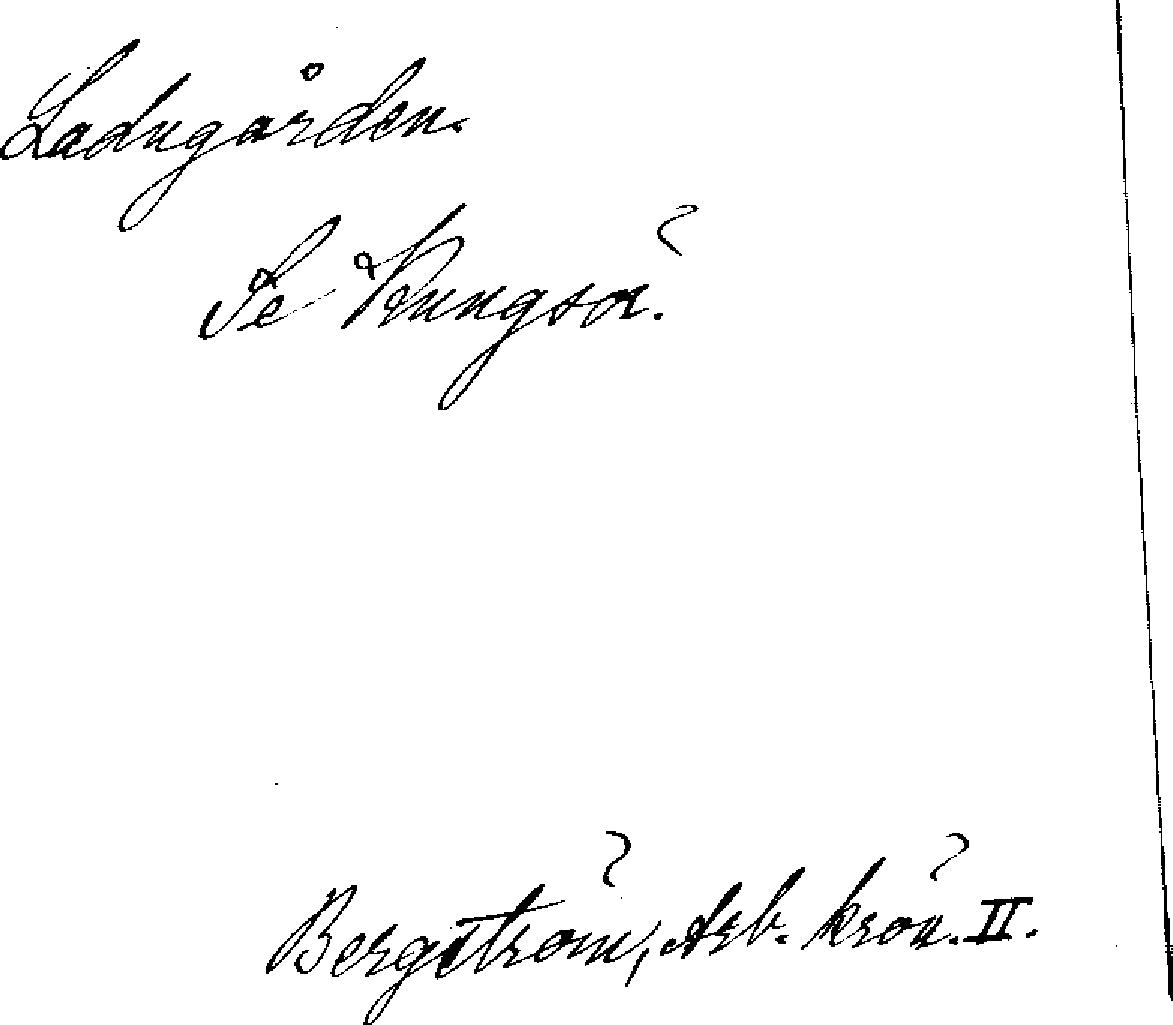 Ladugården.
Se Kungsör.
Bergström, Arb. krön. II.